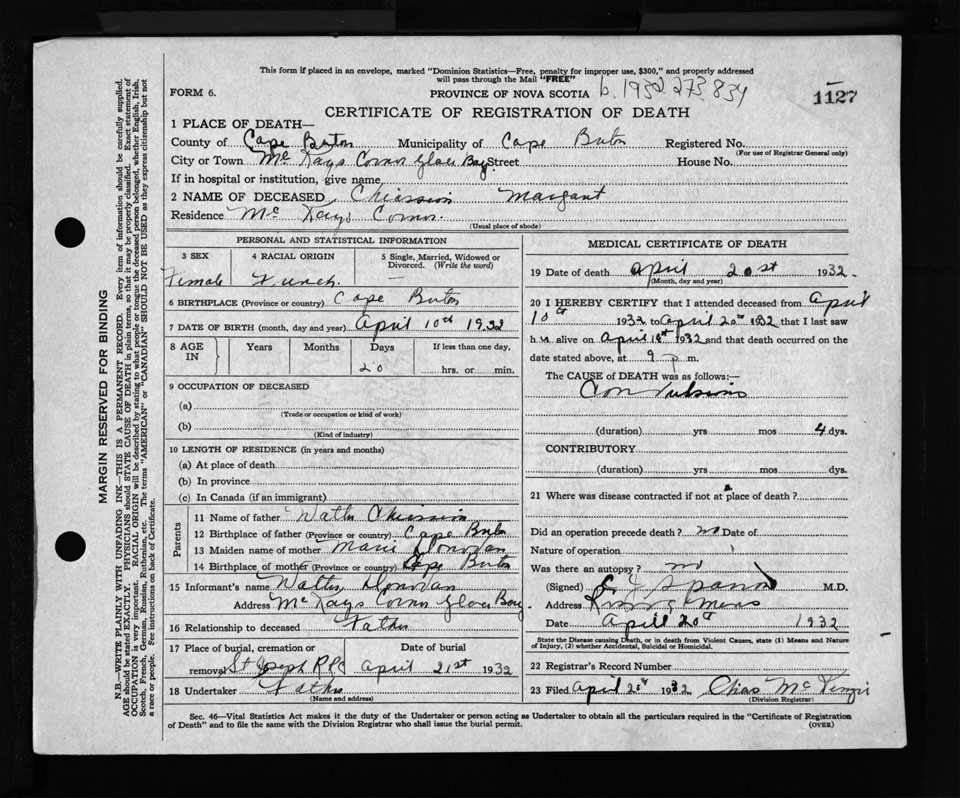 This form if placed in an envelope, marked "Dominion Statistics—Free, penalty for improper use, $300," and properly addressed
will pass through the Mail "FREE"
FORM 6.
PROVINCE OF NOVA SCOTIA b. 1932 273834
1127
CERTIFICATE OF REGISTRATION OF DEATH
1 PLACE OF DEATH—
County of Cape Breton Municipality of Cape Breton Registered No.
(For use of Registrar General only)
City or Town Mc Kays Corner Glace Bay Street House No.
If in hospital or institution, give name
2 NAME OF DECEASED Chiasson Margaret
Residence Mc Kays Corner.
(Usual place of abode)
PERSONAL AND STATISTICAL INFORMATION
3 SEX 4 RACIAL ORIGIN 5 Single, Married, Widowed or Divorced. (Write the word)
Female French
6 BIRTHPLACE (Province or country) Cape Breton
7 DATE OF BIRTH (month, day and year) April 10th 1932
8 AGE IN Years Months Days If less than one day,
20 hrs. or min.
9 OCCUPATION OF DECEASED
(a)
(Trade or occupation or kind of work)
(b)
(Kind of industry)
10 LENGTH OF RESIDENCE (in years and months)
(a) At place of death
(b) In province
(c) In Canada (if an immigrant)
Parents
11 Name of father Walter Chiasson
12 Birthplace of father (Province or country) Cape Breton
13 Maiden name of mother Marie Donovan
14 Birthplace of mother (Province or country) Cape Breton
15 Informant's name Walter Donovan
Address Mc Kays Corner Glace Bay
16 Relationship to deceased Father
17 Place of burial, cremation or removal Date of burial
St Joseph April 21st 1932
18 Undertaker Father
(Name and address)
MEDICAL CERTIFICATE OF DEATH
19 Date of death April 20st 1932.
(Month, day and year)
20 I HEREBY CERTIFY that I attended deceased from April
10th 1932 to April 20th 1932 that I last saw
her alive on April 18th 1932 and that death occurred on the
date stated above, at 9 p m.
The CAUSE of DEATH was as follows:—
Convulsions
(duration) yrs mos 4 dys.
CONTRIBUTORY
(duration) yrs mos dys.
21 Where was disease contracted if not at place of death?
Did an operation precede death? no Date of
Nature of operation
Was there an autopsy? no
(Signed) M.D.
Address
Date April 20th 1932
State the Disease causing Death, or in death from Violent Causes, state (1) Means and Nature
of Injury, (2) whether Accidental, Suicidal or Homicidal.
22 Registrar's Record Number
23 Filed April 1932 Chas Mc Kenzie
(Division Registrar)
Sec. 46—Vital Statistics Act makes it the duty of the Undertaker or person acting as Undertaker to obtain all the particulars required in the "Certificate of Registration
of Death" and to file the same with the Division Registrar who shall issue the burial permit. (OVER)
MARGIN RESERVED FOR BINDING
N.B.—WRITE PLAINLY WITH UNFADING INK—THIS IS A PERMANENT RECORD. Every item of information should be carefully supplied.
AGE should be stated EXACTLY. PHYSICIANS should STATE CAUSE OF DEATH in plain terms, so that it may be properly classified. Exact statement of
OCCUPATION is very important. RACIAL ORIGIN will be described by stating to what people or tongue the deceased person belonged, whether English, Irish,
Scotch, French, German, Russian, Ruthenian, etc. The terms "AMERICAN" or "CANADIAN" SHOULD NOT BE USED as they express citizenship but not
a race or people. See instructions on back of Certificate.